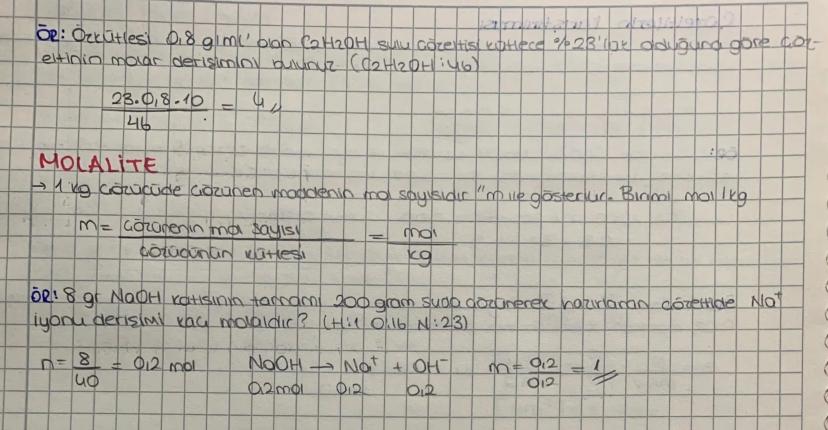 ÖR: Özkütlesi 0,8 g/ml olan C2H2OH sulu çözeltisi kütlece %23'lük olduğuna göre çöz-
eltinin molar derişimini bulunuz (C2H2OH:46)
23.0,8.10 / 46 = 4
MOLALİTE
→ 1 kg çözücüde çözünen maddenin mol sayısıdır "m" ile gösterilir. Birimi mol/kg
m = çözünenin mol sayısı / çözücünün kütlesi = mol / kg
ÖR: 8 gr NaOH katısının tamamı 200 gram suda çözünerek hazırlanan çözeltide Na⁺
iyonu derişimi kaç molaldir? (H:1 O:16 N:23)
n = 8/40 = 0,2 mol NaOH → Na⁺ + OH⁻ m = 0,2/0,2 = 1
0,2mol 0,2 0,2